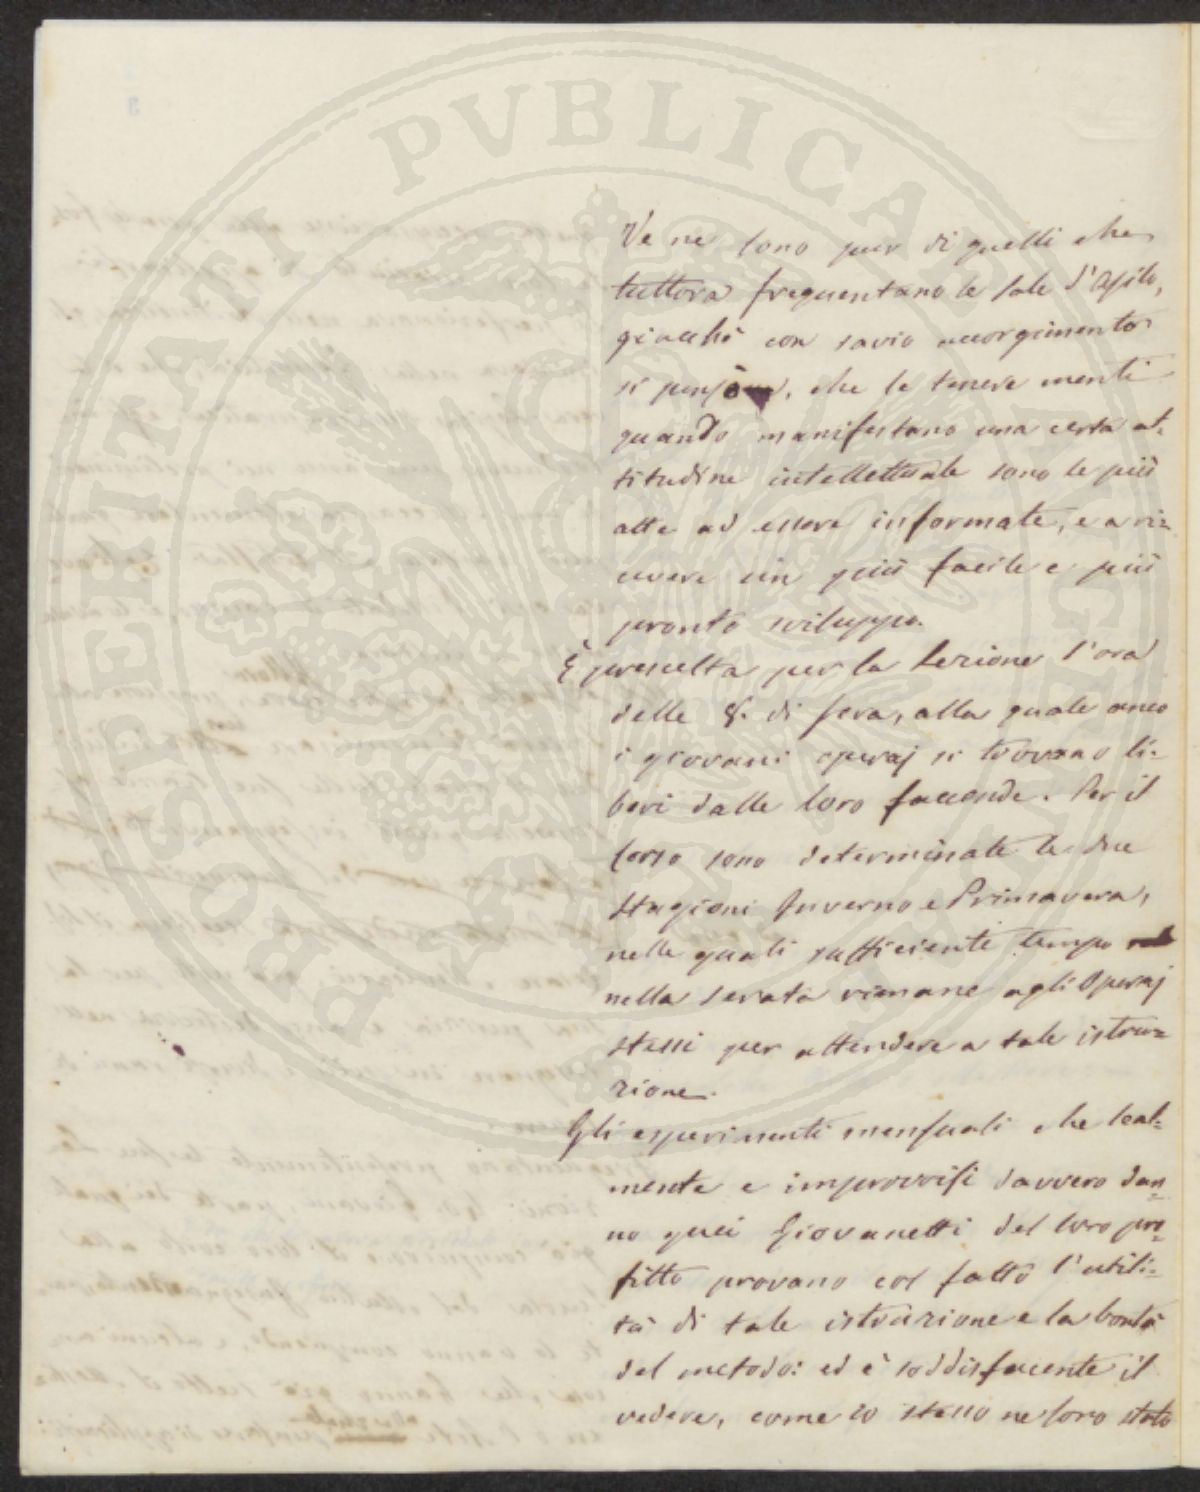 Ve ne sono pur di quelli che
tuttora frequentano le sale d'Asilo,
giacchè con savio accorgimento
si pensò, che le tenere menti
quando manifestano una certa at-
titudine intellettuale sono le più
atte ad essere informate, e a ri=
cevere un più facile e più
pronto sviluppo.
È prescelta per la Lezione l'ora
delle 8. di sera, alla quale anco
i giovani operaj si trovano li=
beri dalle loro faccende. Per il
Corso sono determinate le due
stagioni Inverno e Primavera,
nelle quali sufficiente tempo
nella serata rimane agli Operaj
stessi per attendere a tale istru=
zione.
Gli esperimenti mensuali che leal=
mente e improvvisi davvero dan=
no quei Giovanetti del loro pro=
fitto provano col fatto l'utili=
tà di tale istruzione e la bontà
del metodo: ed è soddisfacente il
vedere, come lo stesso ne loro stato
PROSPERITATI PVBLICAE AVGENDAE